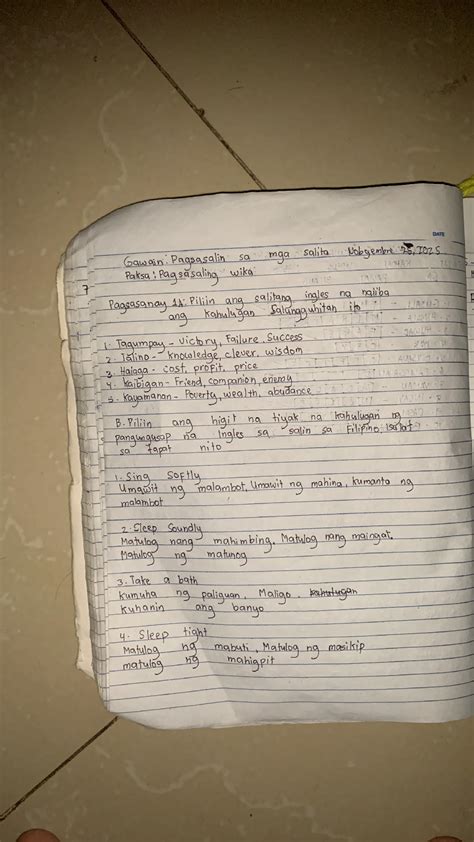 DATE
Gawain: Pagsasalin sa mga salita Nobyembre 25, 2025
Paksa: Pagsasaling wika
7
Pagsasanay 1A. Piliin ang salitang ingles na naiiba
ang kahulugan Salungguhitan ito
1. Tagumpay - Victory, Failure, Success
2. Talino - knowledge, clever, wisdom
3. Halaga - cost, profit, price
4. Kaibigan - Friend, companion, enemy
5. Kayamanan - Poverty, wealth, abudance
B. Piliin ang higit na tiyak na kahulugan ng
pangungusap na Ingles sa salin sa Filipino,
sa tapat nito
1. Sing Softly
Umawit ng malambot, Umawit ng mahina, kumanta ng
malambot
2. Sleep Soundly
Matulog nang mahimbing, Matulog nang maingat,
Matulog ng matunog
3. Take a bath
kumuha ng paliguan, Maligo, kahulugan
kuhanin ang banyo
4. Sleep tight
Matulog ng mabuti, Matulog ng masikip
matulog ng mahigpit